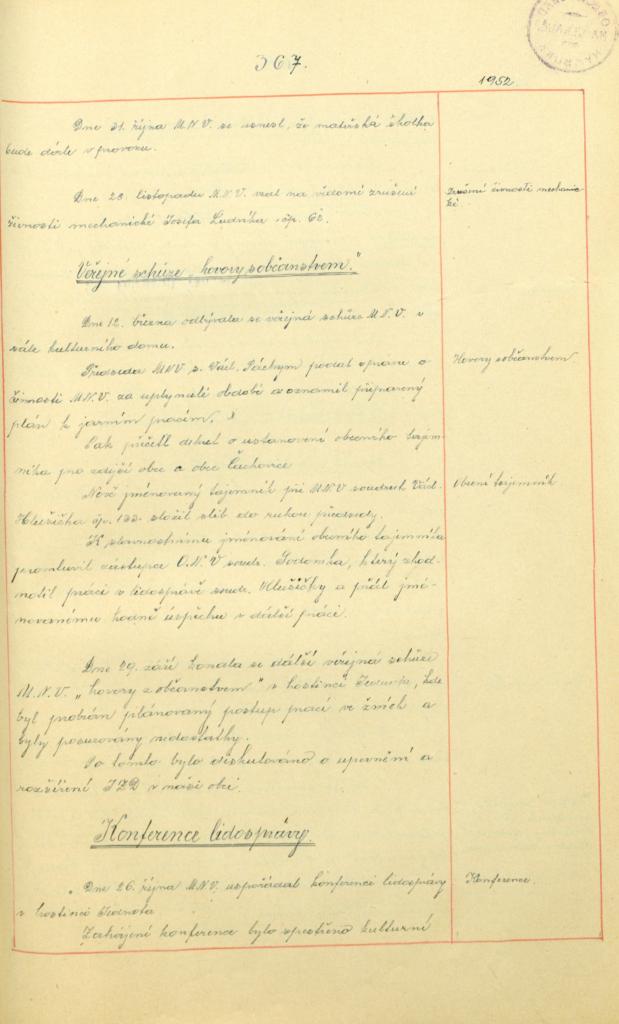 367.
1952
Dne 31. října M.N.V. se usnesl, že mateřská školka
bude dále v provozu.
Dne 28. listopadu M.N.V. vzal na vědomí zrušení
živnosti mechanické Josefa Ludvíka čp. 62.
Zrušení živnosti mechanic
ké.
Veřejné schůze „hovory s občanstvem."
Dne 12. března odbývala se veřejná schůze M.N.V. v
sále kulturního domu.
Předseda MNV s. Václ. Páchým podal zprávu o
činnosti M.N.V. za uplynulé období a oznámil připravený
plán k jarním pracím.
Hovory s občanstvem.
Pak přečetl dekret o ustanovení obecního tajem-
níka pro zdejší obec a obec Čachovice
Nově jmenovaný tajemník při M.N.V. soudruh Vád.
Hlušička čp. 133. složil slib do rukou předsedy.
Obecní tajemník.
K slavnostnímu jmenování obecního tajemníka
promluvil zástupce O.N.V. soudr. Sodomka, který zhod-
notil práci v lidosprávě soudr. Hlušičky a přál jme-
novanému hodně úspěchu v další práci.
Dne 29. září konala se další veřejná schůze
M.N.V. „hovory z občanstvem" v hostinci Jednota, kde
byl probrán plánovaný postup prací ve žních a
byly posuzovány nedostatky.
Po tomto bylo diskutováno o upevnění a
rozšíření JZD v naší obci.
Konference lidosprávy.
Dne 26. října M.N.V. uspořádal konferenci lidosprávy
v hostinci Jednota
Konference.
Zahájení konference bylo zpestřeno kulturní